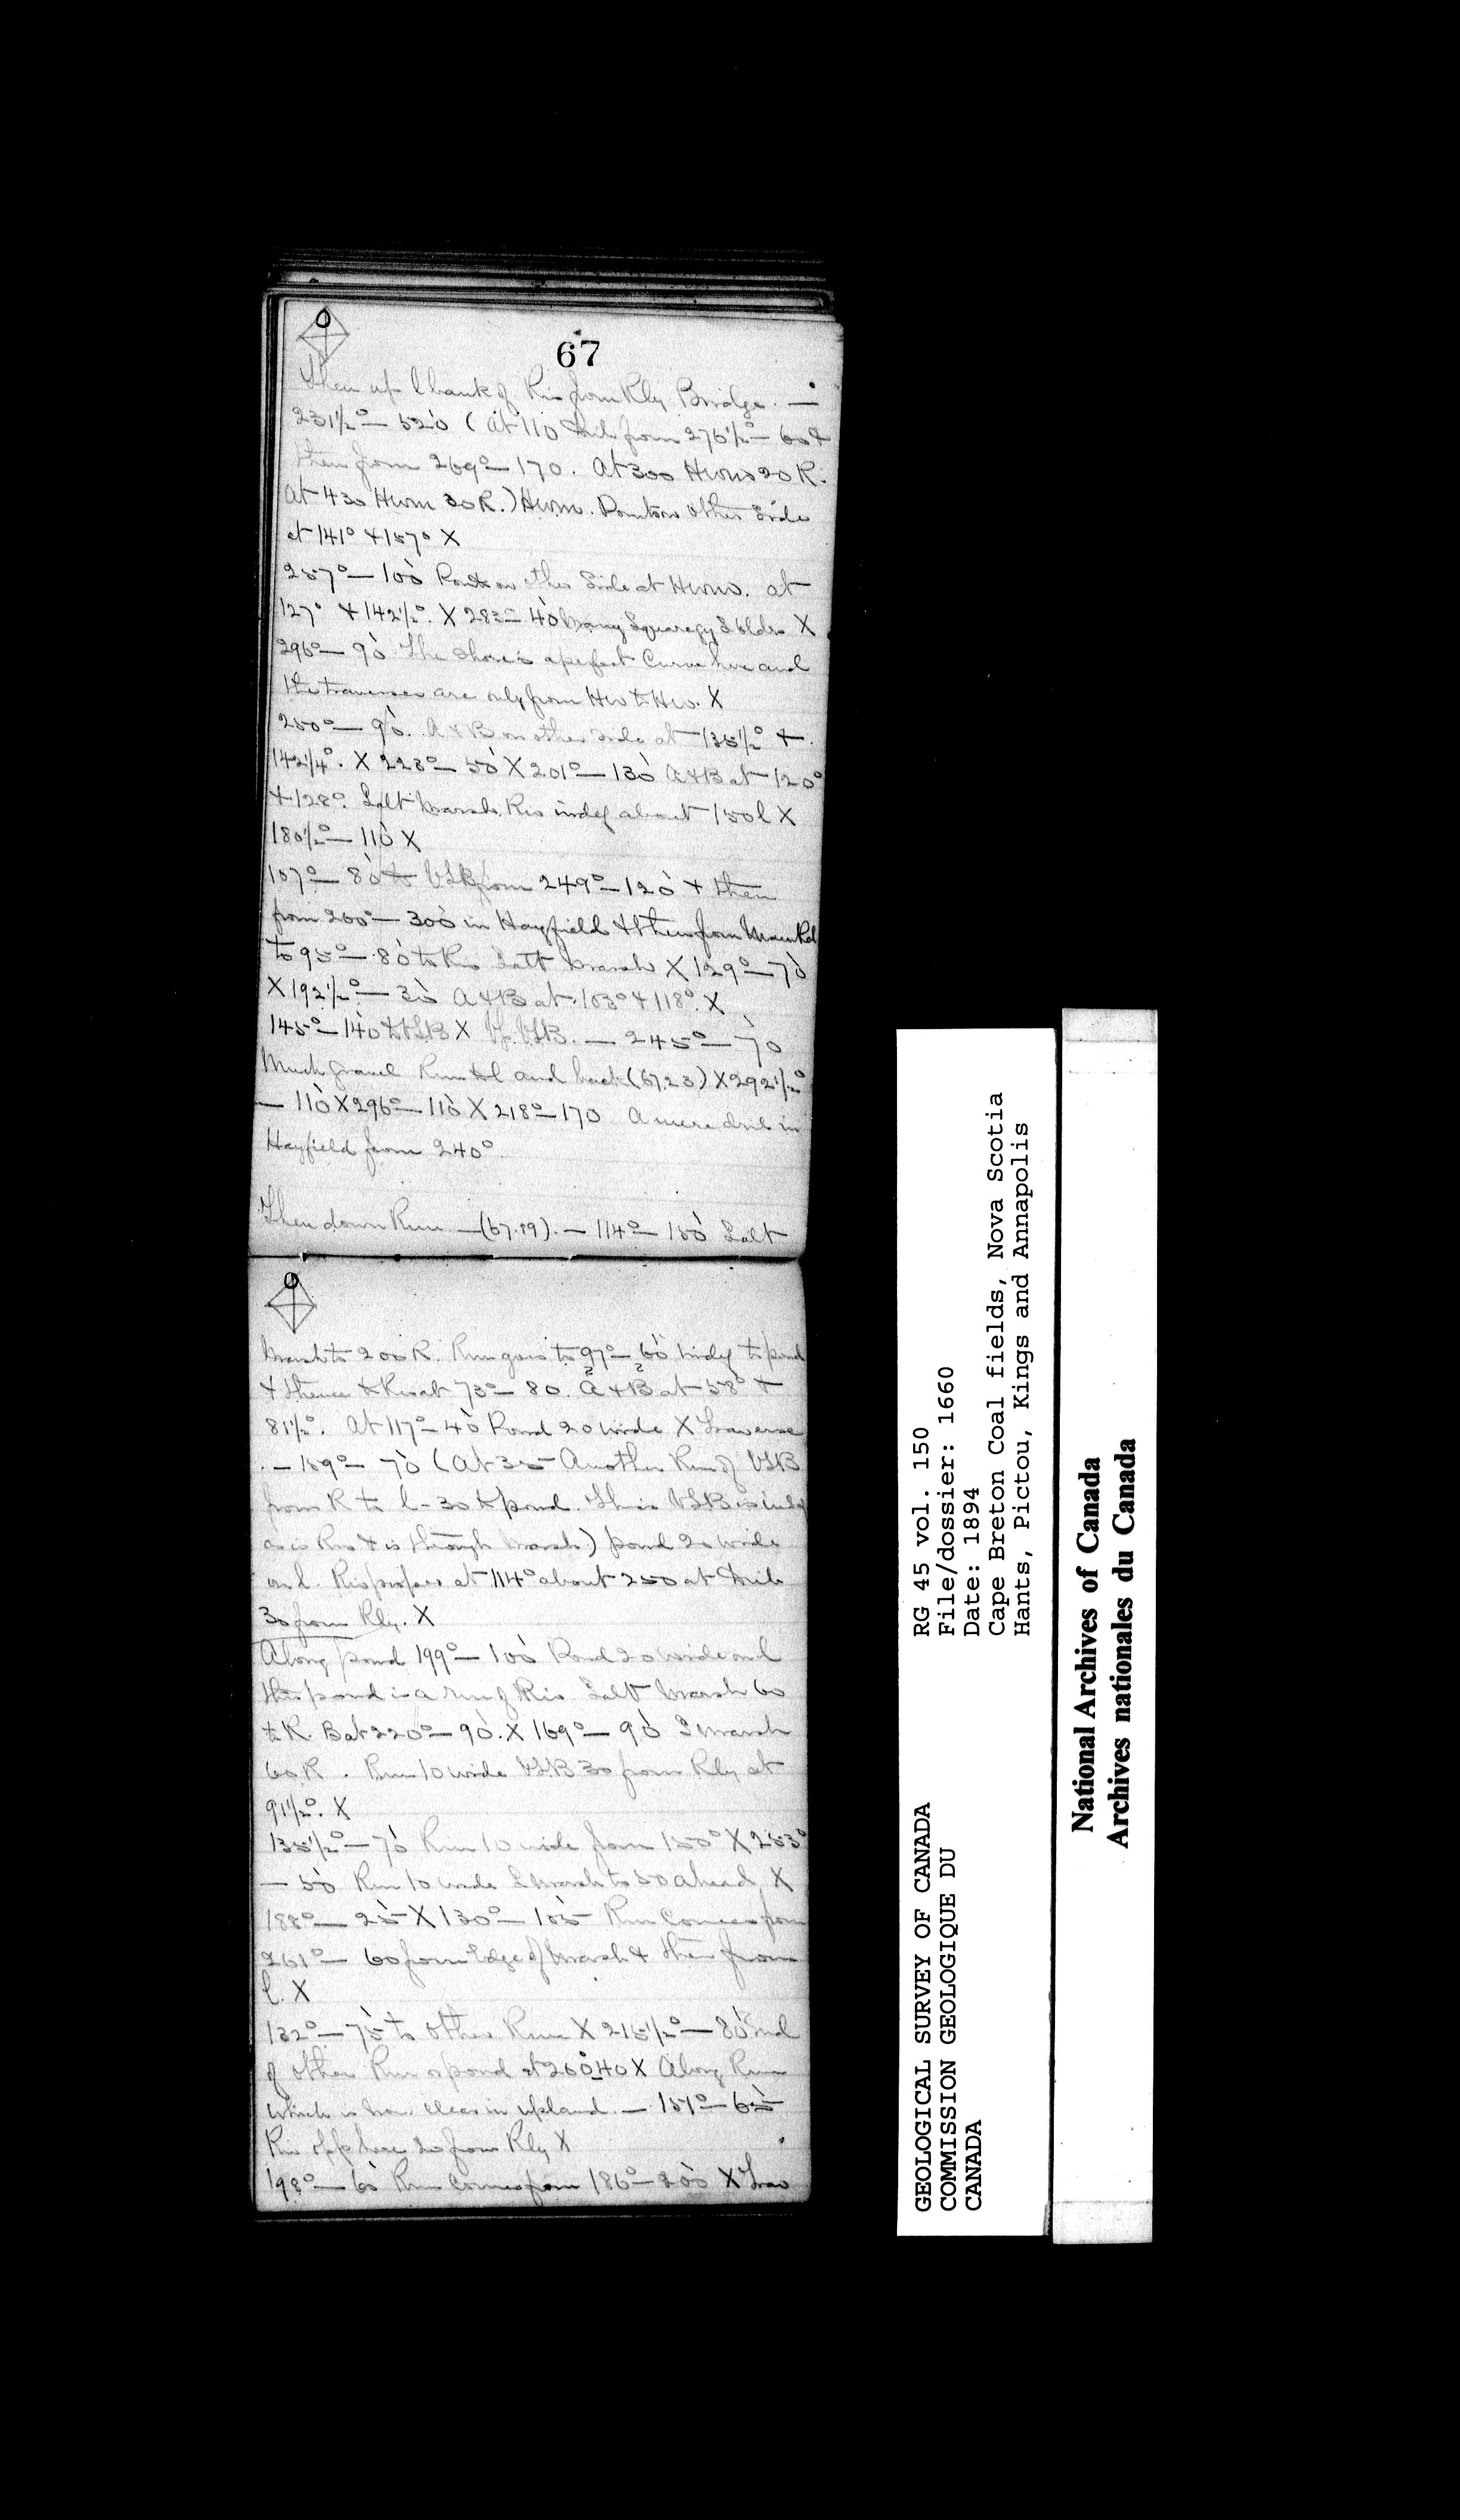 67
Then up l bank of Riv from Rly Bridge. —
231½° — 520 (At 110 from 276½° — 60 &
then from 269° — 170. At 300 Hwm 20 R.
At 430 Hwm 30 R.) Hwm. Points on other Side
at 141° & 157° X
257° — 100 Points on other Side at Hwm. at
127° & 142½°. X 283° — 40 Many Square gy S bldrs X
296° — 90. The Shore is a perfect Curve here and
the traverses are only from Hw to Hw. X
250° — 90. A & B on other side at 135½° &
142¼°. X 223° — 50 X 201° — 130 A & B at 120°
& 128°. Salt Marsh. Riv indef about 150 l X
180½° — 110 X
107° — 80 to VSB from 249° — 120 & then
from 260° — 300 in Hayfield & then from Main Rd
to 95° — 80 to Riv Salt Marsh X 129° — 70
X 192½° — 30 A & B at 103° & 118°. X
145° — 140 to VSB X Up VSB. — 245° — 70
Much gravel Run to l and back (67.23) X 292½°
— 110 X 296° — 110 X 218° — 170 A mere drib in
Hayfield from 240°.
Then down Run — (67.19). — 114° — 150 Salt
Marsh to 200 R. Run goes to 97° — 60 indef to pond
& thence to Riv at 73° — 80. A & B at 58° &
81½°. At 117° — 40 Pond 20 wide X Traverse
— 159° — 70 (At 35 Another Run of VSB
from R to l — 30 to pond. This VSB is indef
as is Riv & is through Marsh) pond 20 wide
on l. Riv proper at 114° about 250 at
30 from Rly. X
Along pond 199° — 100 Pond 20 wide on l
this pond is a run of Riv. Salt Marsh 60
to R. B at 220° — 90. X 169° — 90 S Marsh
60 R. Run 10 wide VSB 30 from Rly at
91½°. X
135½° — 70 Run 10 wide from 150° X 253°
— 50 Run 10 wide S Marsh to 50 ahead X
188° — 25 X 130° — 105 Run Comes from
261° — 60 from Edge of Marsh & then from
l. X
132° — 75 to other Run X 215½° — 80 End
of other Run or pond at 260° 40 X Along Run
which is now clear in upland. — 151° — 65
Riv opp here 20 from Rly X
198° — 60 Run Comes from 186° — 200 X Trav
RG 45 vol. 150
File/dossier: 1660
Date: 1894
Cape Breton Coal fields, Nova Scotia
Hants, Pictou, Kings and Annapolis
GEOLOGICAL SURVEY OF CANADA
COMMISSION GEOLOGIQUE DU
CANADA
National Archives of Canada
Archives nationales du Canada